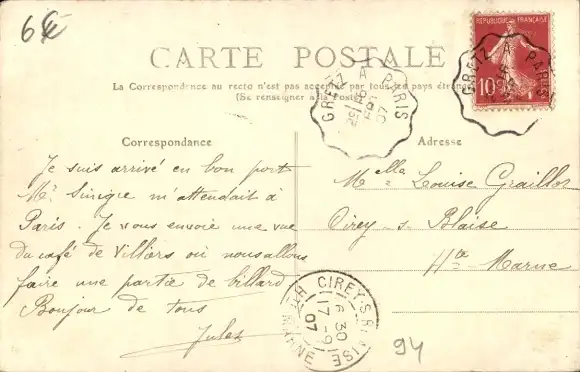 6€
CARTE POSTALE
La Correspondance au recto n'est pas acceptée par tous les pays étrangers
(Se renseigner à la Poste)
RÉPUBLIQUE FRANÇAISE
10
GRETZ A PARIS
GRETZ A PARIS
07
Correspondance
Adresse
Je suis arrivé en bon port
Mr Sinègre m'attendait à
Paris. Je vous envoie une vue
du café de Villiers où nous allons
faire une partie de billard
Bonjour de tous
Jules
Melle Louise Graillot
Cirey-s-Blaise
Hte Marne
CIREY-S-BLAISE
6 30
17 - 9
07
Hte MARNE
94